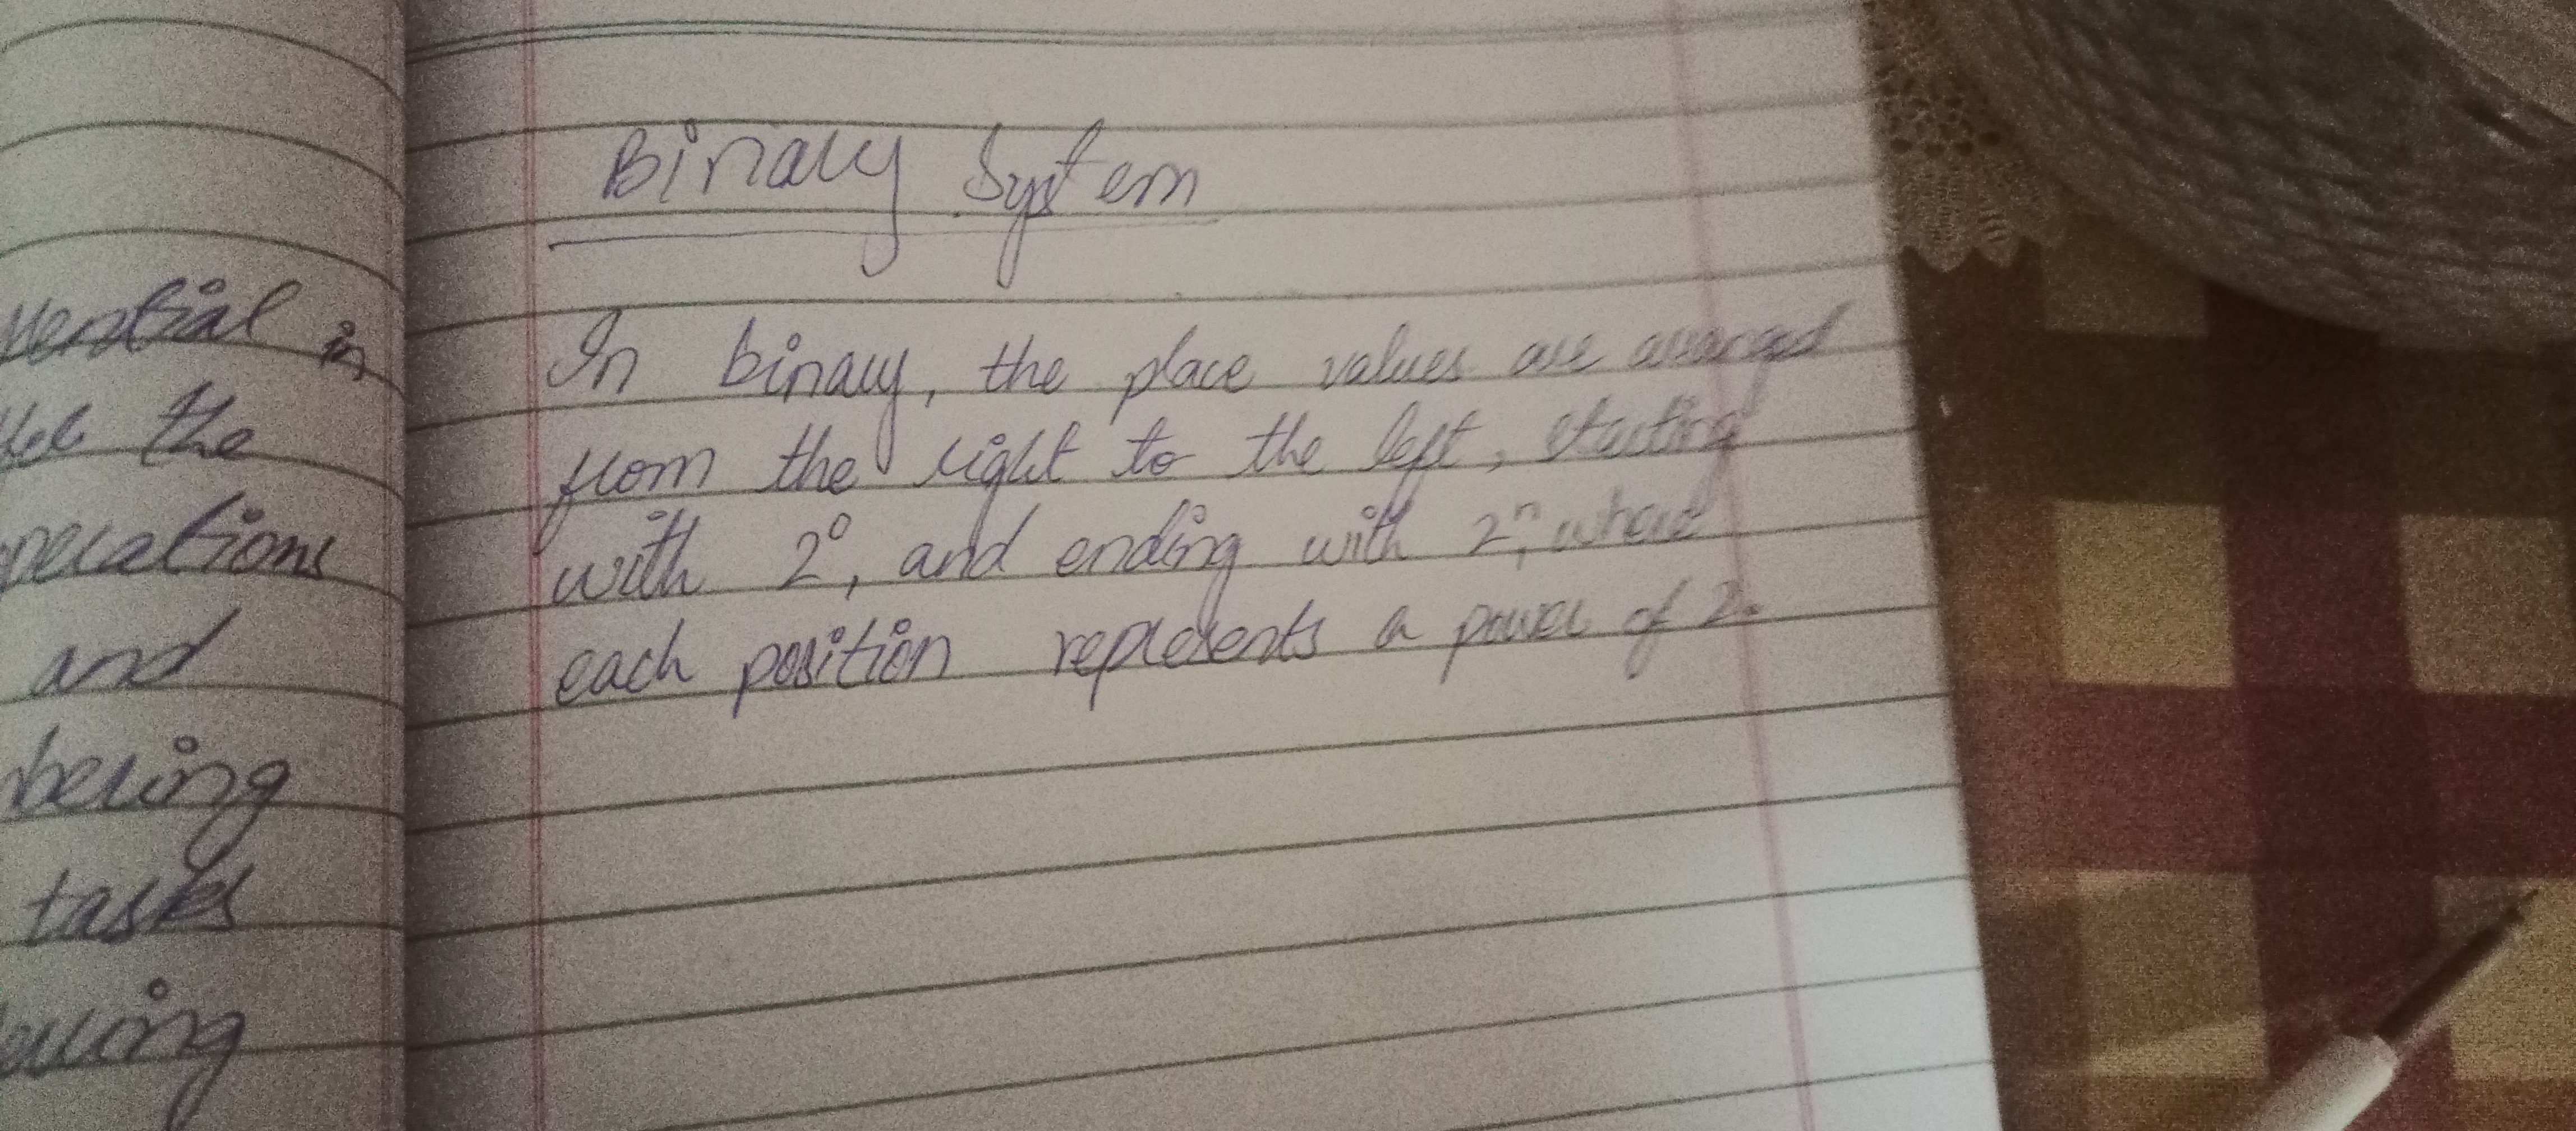 in
the
and
tasks
Binary System
In binary, the place values are arranged
from the right to the left, starting
with 2⁰, and ending with 2ⁿ, where
each position represents a power of 2.